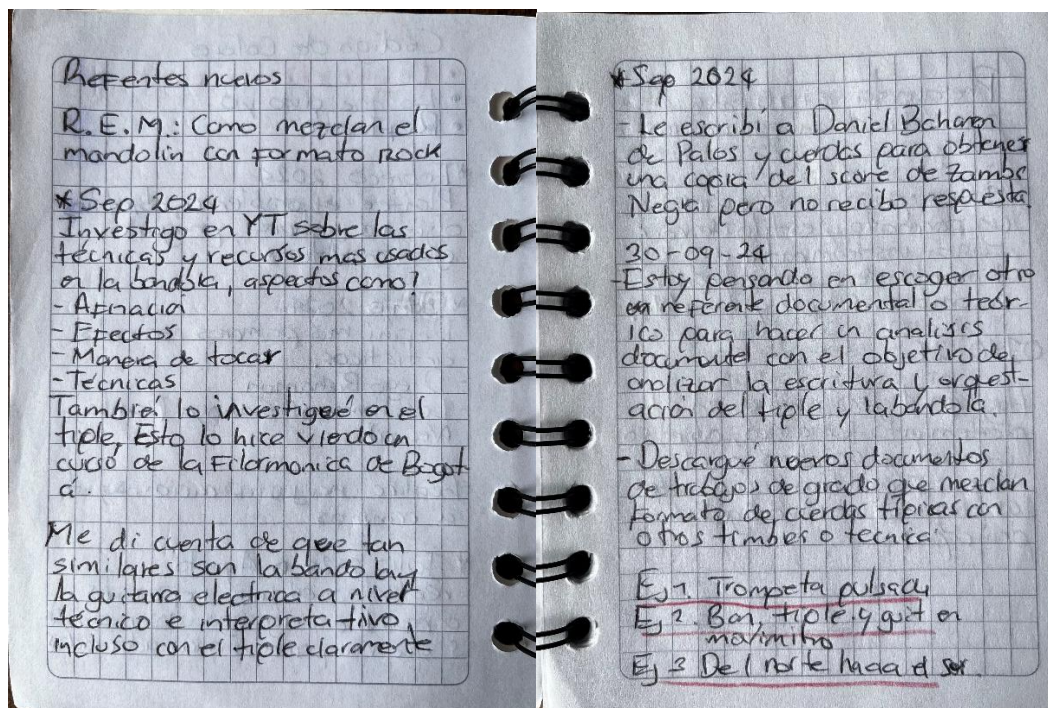 Refentes nuevos
R.E.M.: Como mezclan el
mandolin con formato Rock
* Sep 2024
Investigo en YT sobre las
técnicas y recursos mas usados
en la bandola, aspectos como:
- Afinacion
- Efectos
- Manera de tocar
- Técnicas
También lo investigué en el
tiple, Esto lo hice viendo un
curso de la Filarmonica de Bogot
á.
Me di cuenta de que tan
similares son la bandola y
la guitarra electrica a nivel
técnico e interpretativo,
incluso con el tiple claramente
* Sep 2024
- Le escribí a Daniel
de Palos y cuerdas para obtener
una copia del score de Zamba
Negra pero no recibo respuesta
30-09-24
- Estoy pensando en escoger otro
referente documental o teór-
ico para hacer un analisis
documental con el objetivo de
analizar la escritura y orquest-
ación del tiple y la bandola.
- Descargué nuevos documentos
de trabajos de grado que mezclan
formato de cuerdas típicas con
otros timbres o tecnica
Ej 1. Trompeta pulsada
Ej 2. Ban, tiple y guit en
Ej 3 Del norte hacia el sur.